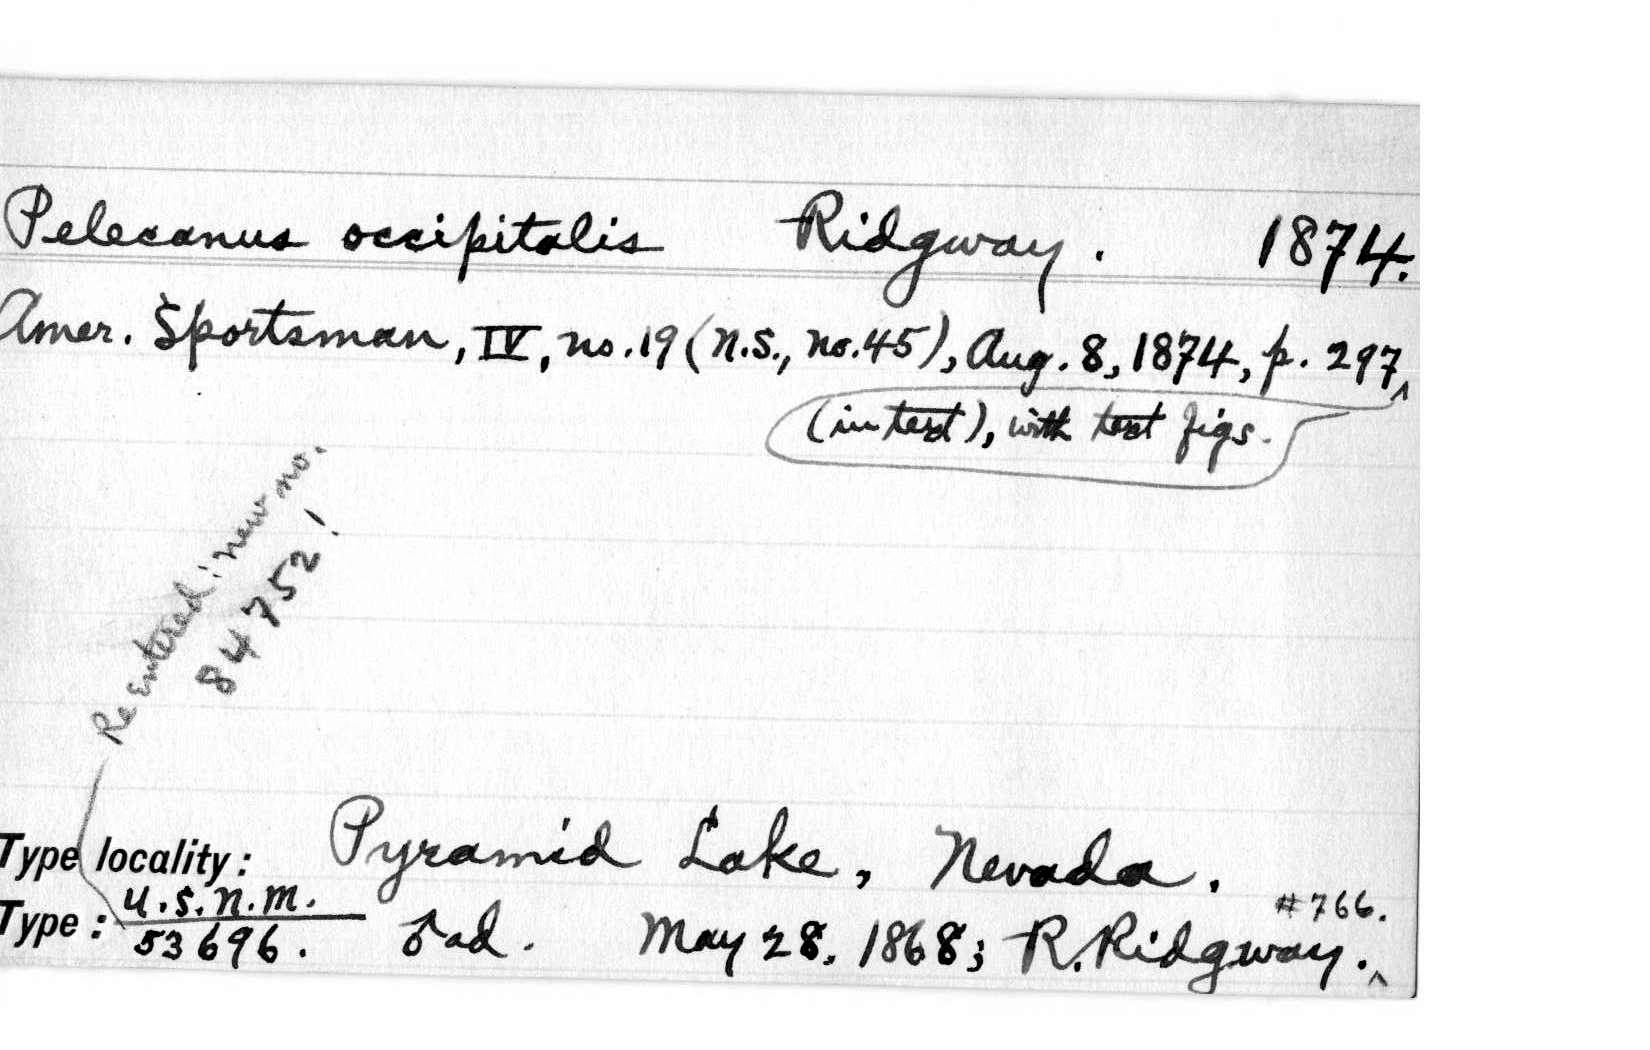 Pelecanus occipitalis Ridgway. 1874.
Amer. Sportsman, IV, no. 19 (n.s., no. 45), Aug. 8, 1874, p. 297^
(in text), with text figs.
Reentered: new no.
84752!
Type locality: Pyramid Lake, Nevada.
Type: U.S.N.M.
53696. ♂ ad. May 28, 1868; R. Ridgway.^
#766.